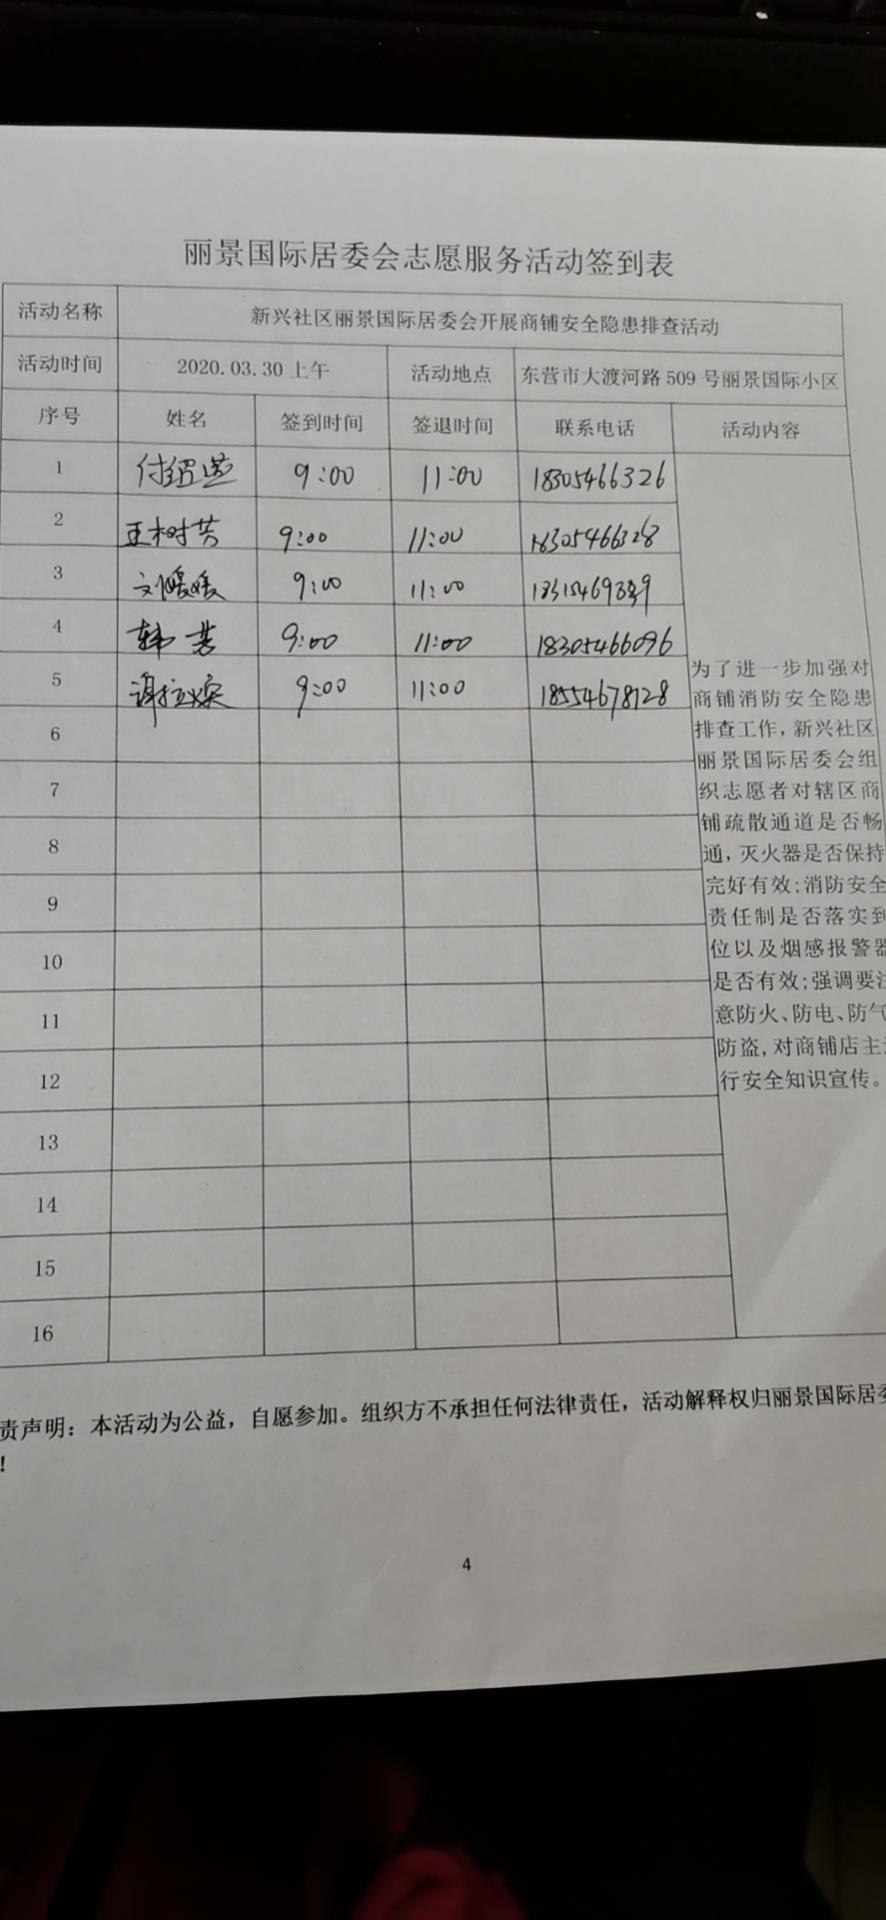 丽景国际居委会志愿服务活动签到表
活动名称 新兴社区丽景国际居委会开展商铺安全隐患排查活动
活动时间 2020.03.30上午 活动地点 东营市大渡河路509号丽景国际小区
序号 姓名 签到时间 签退时间 联系电话 活动内容
1 9:00 11:00 18305466326
2 王树芳 9:00 11:00 18305466328
3 9:00 11:00
4 韩芸 9:00 11:00 18305466096
5 9:00 11:00 18554678128
6
7
8
9
10
11
12
13
14
15
16
为了进一步加强对
商铺消防安全隐患
排查工作，新兴社区
丽景国际居委会组
织志愿者对辖区商
铺疏散通道是否畅
通，灭火器是否保持
完好有效;消防安全
责任制是否落实到
位以及烟感报警器
是否有效;强调要注
意防火、防电、防气
防盗,对商铺店主进
行安全知识宣传。
责声明：本活动为公益，自愿参加。组织方不承担任何法律责任，活动解释权归丽景国际居委
！
4